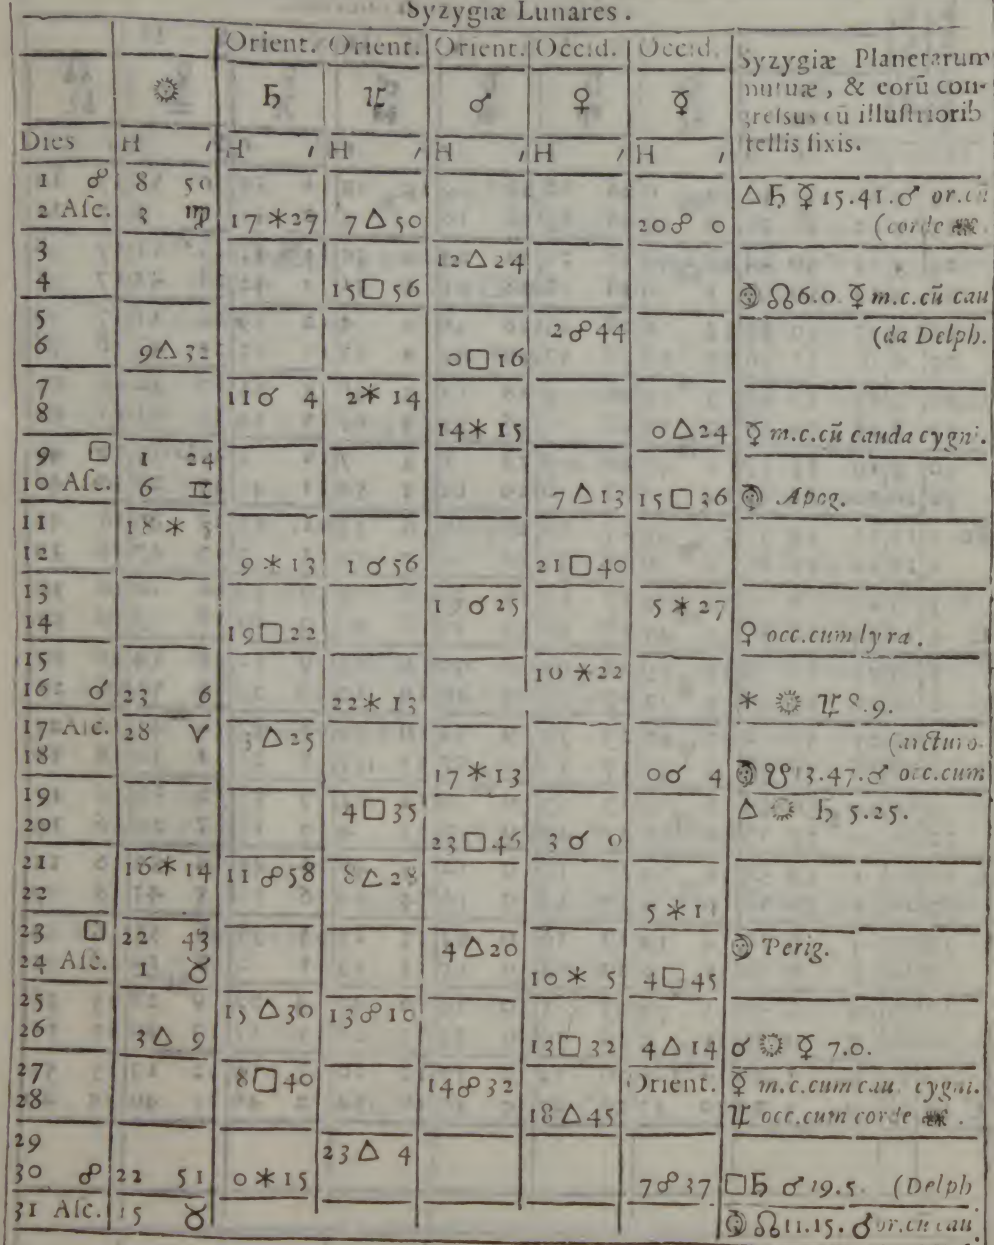 Syzygiæ Lunares.
Orient. Orient. Orient. Occid. Occid. Syzygiæ Planetarum
☼ ♄ ♃ ♂ ♀ ☿ mutuæ, & eorū con-
gressus cū illustriorib
Dies H ′ H ′ H ′ H ′ H ′ H ′ stellis fixis.
1 ☍ 8 50 △ ♄ ☿ 15.41. ♂ or.cū
2 Asc. 3 ♍ 17 ✶ 27 7 △ 50 20 ☍ 0 (corde
3 12 △ 24
4 15 □ 56 ☊ 6.0. ☿ m.c.cū cau
5 2 ☍ 44 (da Delph.
6 9 △ 32 0 □ 16
7 11 ☌ 4 2 ✶ 14
8 14 ✶ 15 0 △ 24 ☿ m.c.cū cauda cygni.
9 □ 1 24
10 Asc. 6 ♊ 7 △ 13 15 □ 36 Apog.
11 18 ✶ 3
12 9 ✶ 13 1 ☌ 56 21 □ 40
13 ☌ 25 5 ✶ 27
14 19 □ 22 ♀ occ.cum lyra.
15 10 ✶ 22
16 ☌ 23 6 22 ✶ 13 ✶ ☼ ♃ 8.9.
17 Asc. 28 ♈ 3 △ 25 (arcturo.
18 17 ✶ 13 0 ☌ 4 ☋ 13.47. ♂ occ.cum
19 4 □ 35 △ ☼ ♄ 5.25.
20 23 □ 46 3 ☌ 0
21 16 ✶ 14 11 ☍ 58 8 △ 28
22 5 ✶
23 □ 22 43 4 △ 20 Perig.
24 Asc. 1 ♉ 10 ✶ 5 4 □ 45
25 15 △ 30 13 ☍ 10
26 3 △ 9 13 □ 32 4 △ 14 ☌ ☼ ☿ 7.0.
27 8 □ 40 14 ☍ 32 Orient. ☿ m.c.cum cau. cygni.
28 18 △ 45 ♃ occ.cum corde
29 23 △ 4
30 ☍ 22 51 0 ✶ 15 7 ☍ 37 □ ♄ ♂ 19.5. (Delph
31 Asc. 15 ♉ ☊ 11.15. ♂ or.cū cau.